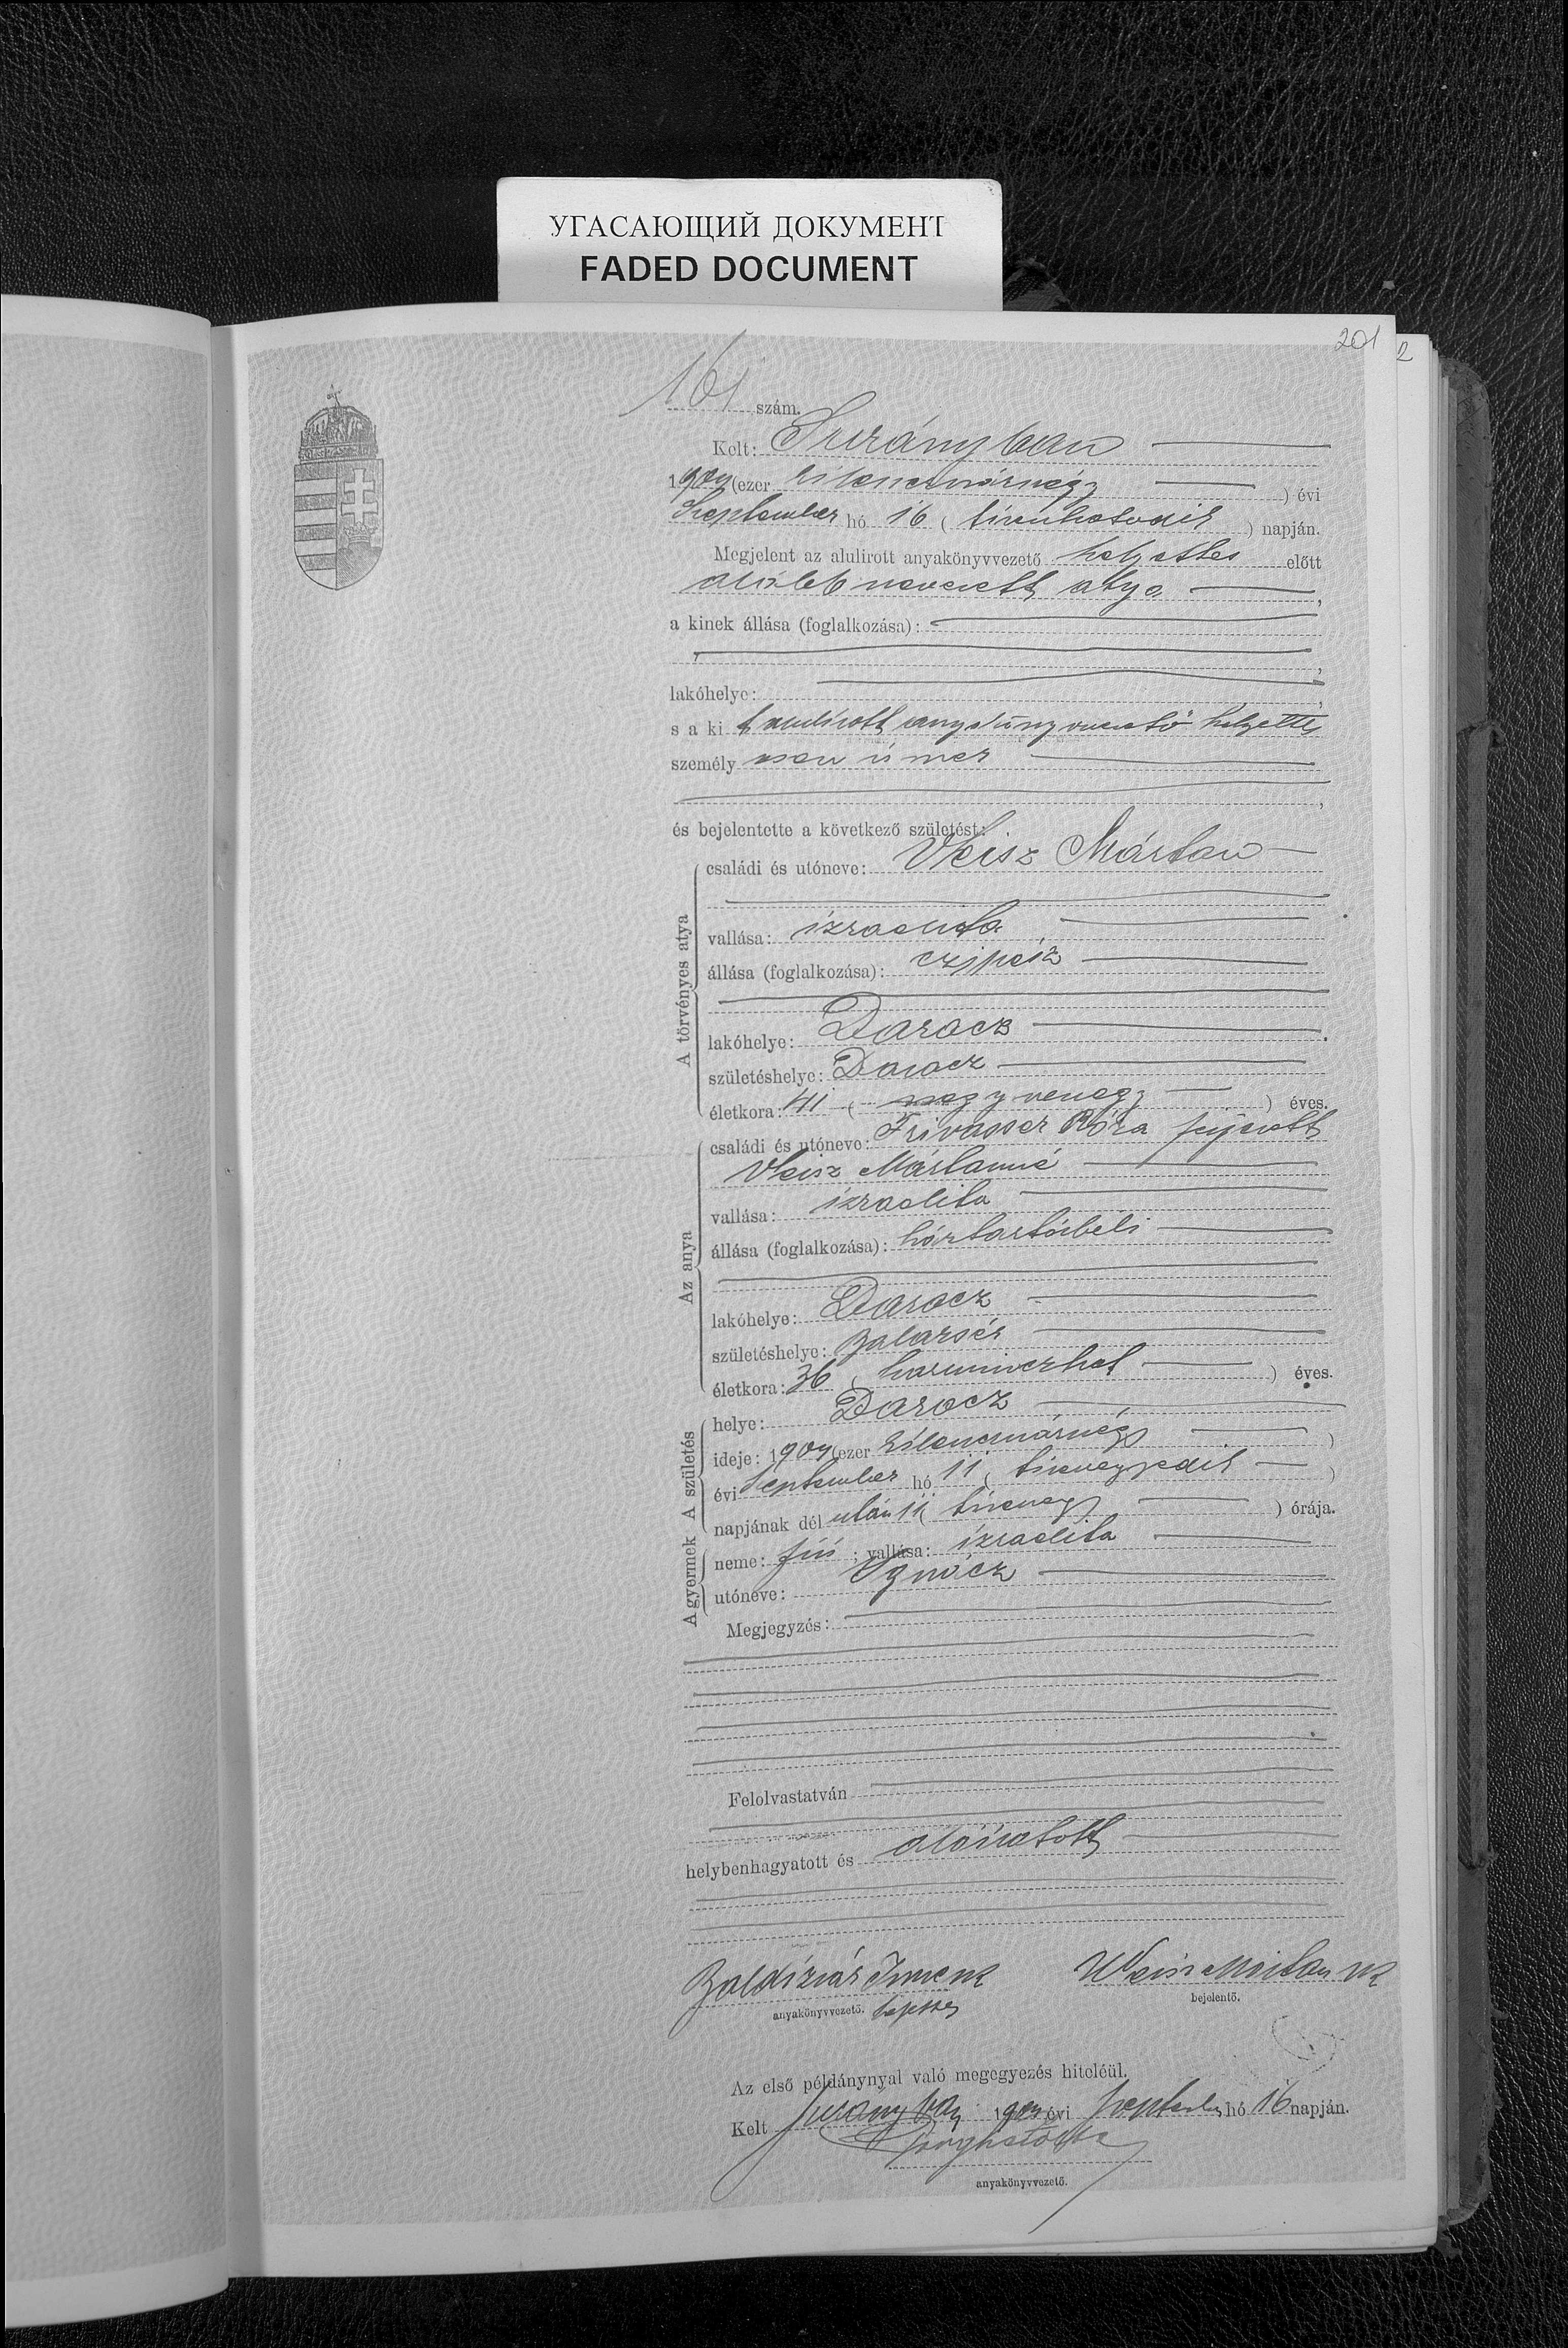 УГАСАЮЩИЙ ДОКУМЕНТ
FADED DOCUMENT
201
2
161 szám.
Kelt: Surányban
1904 (ezer kilencszáznégy ) évi
Szeptember hó 16 ( tizenhatodik ) napján.
Megjelent az alulirott anyakönyvvezető helyettes előtt
alább nevezett atya ,
a kinek állása (foglalkozása):
,
lakóhelye: ,
s a ki t alulirott anyakönyvvezető helyettes
személy esen ismer
,
és bejelentette a következő születést:
A törvényes atya
családi és utóneve: Veisz Márton
vallása: izraelita
állása (foglalkozása): czipész
lakóhelye: Darocz
születéshelye: Darocz
életkora: 41 ( negyvenegy ) éves.
Az anya
családi és utóneve: Róza férjezett
Veisz Mártonné
vallása: izraelita
állása (foglalkozása): háztartásbeli
lakóhelye: Darocz
születéshelye:
életkora: 36 ( harminczhat ) éves.
A születés
helye: Darocz
ideje: 1904 (ezer kilencszáznégy )
évi Szeptember hó 11 ( tizenegyedik )
napjának dél után 11 ( tizenegy ) órája.
A gyermek
neme: fiú ; vallása: izraelita
utóneve: Ignácz
Megjegyzés:
Felolvastatván
helybenhagyatott és aláiratott
Imre mk
anyakönyvvezető. helyettes
Weisz Márton mk
bejelentő.
Az első példánynyal való megegyezés hiteléül.
Kelt Surányban 1904 évi hó 16 napján.
anyakönyvvezető.